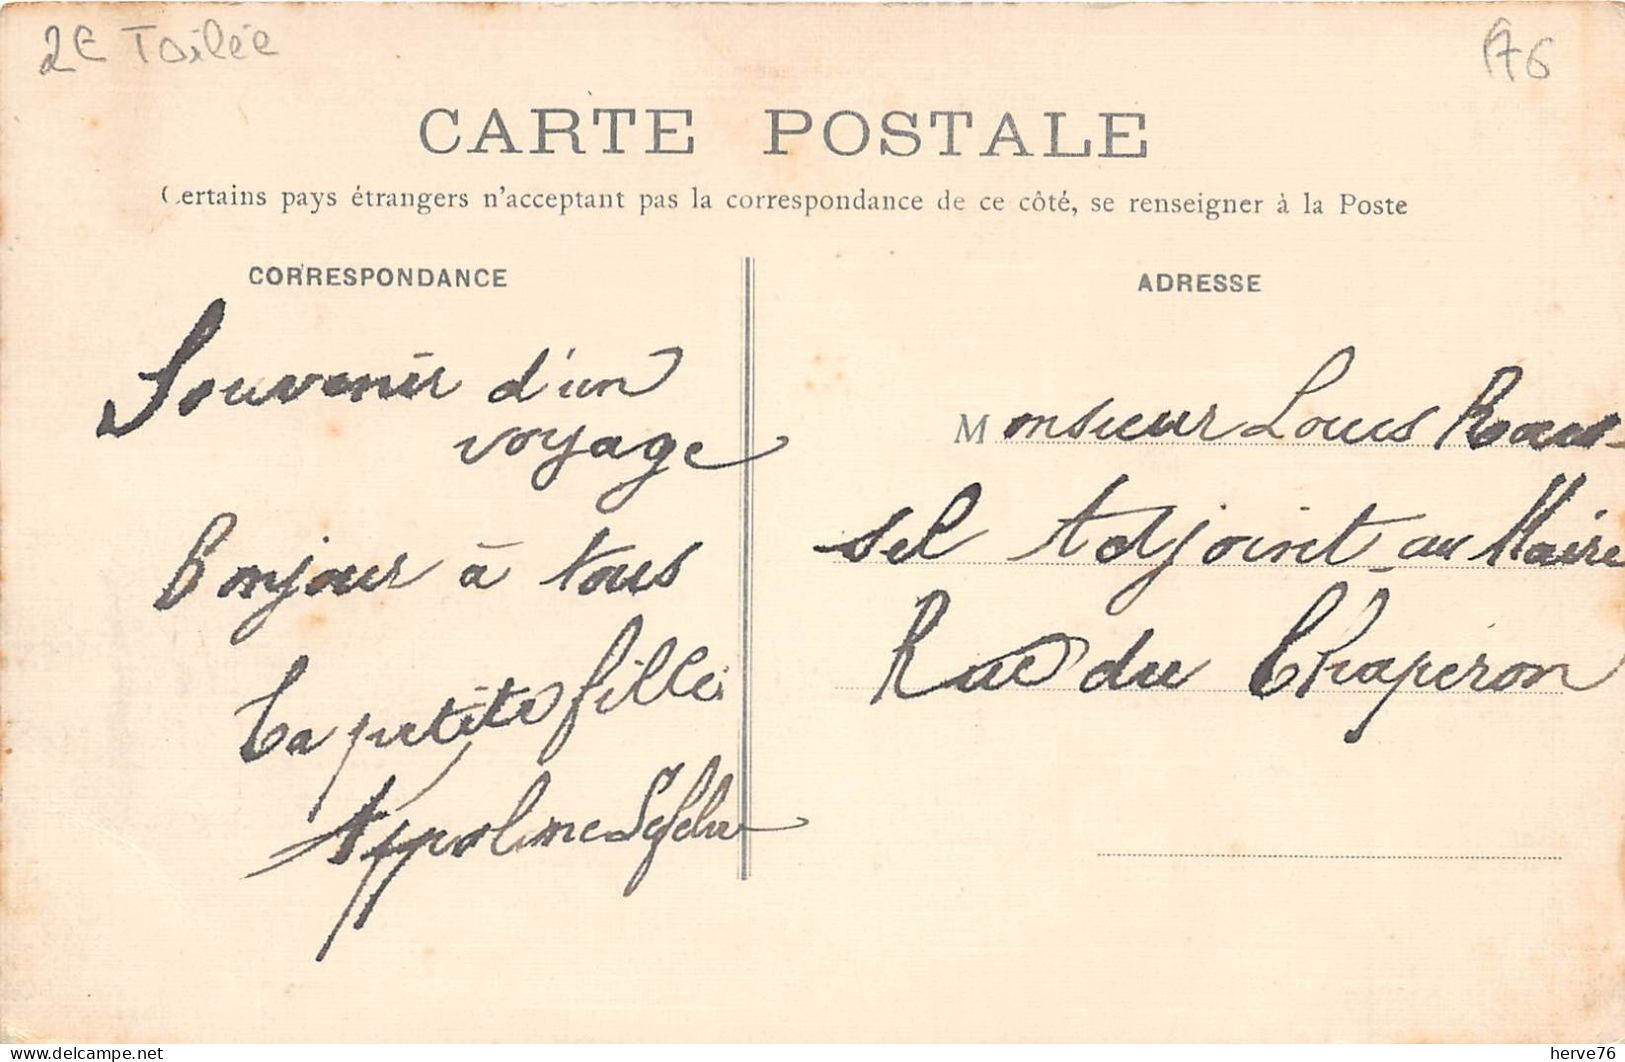 2E Toilée
A76
CARTE POSTALE
Certains pays étrangers n'acceptant pas la correspondance de ce côté, se renseigner à la Poste
CORRESPONDANCE
Souvenir d'un
voyage
Bonjour à tous
Ta petite fille
Appoline
ADRESSE
Monsieur Louis Rous-
sel Adjoint au Maire
Rue du Chaperon
delcampe.net
herve76